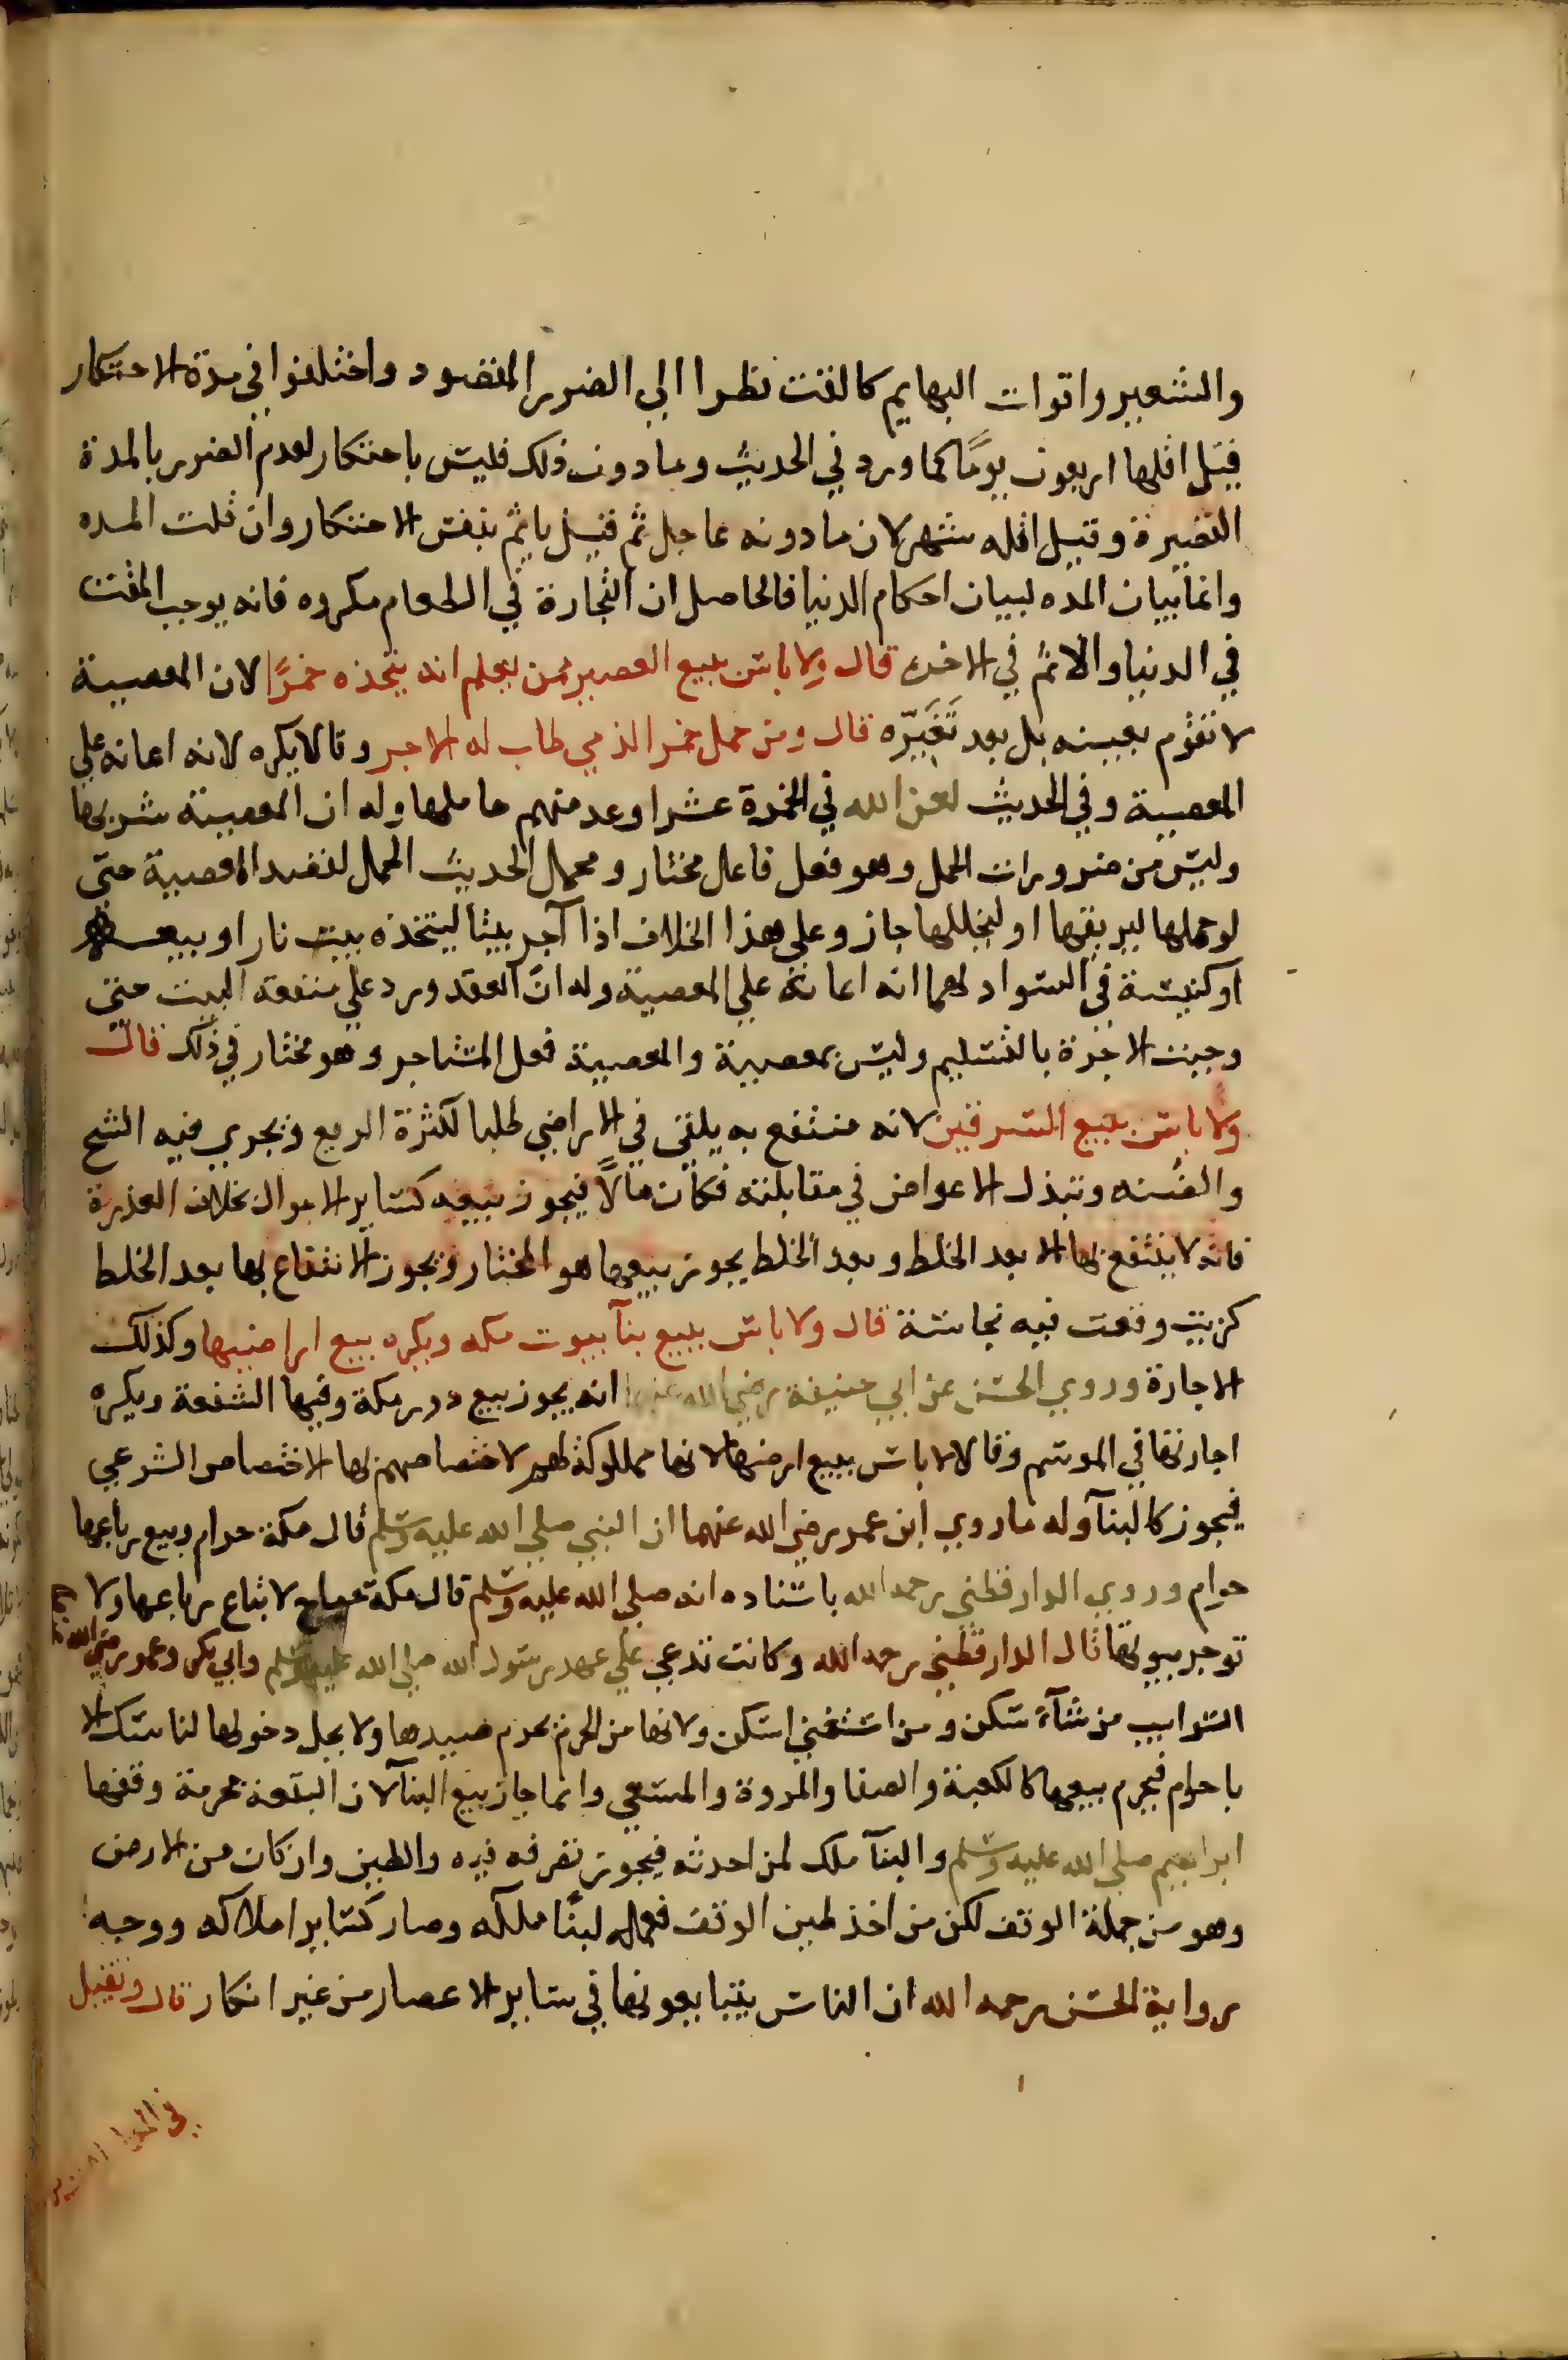 والشعير واقوات البهايم كالقت نظرا الي الضرر المقصود واختلفوا في مدة الاحتكار
فقيل اقلها اربعون يومًا كما ورد في الحديث وما دون ذلك فليس باحتكار لعدم الضرر بالمدة
القصيرة وقيل اقله شهر لان ما دونه عاجل ثم قيل ياثم بنفس الاحتكار وان قلت المده
وانما بيان المده لبيان احكام الدنيا فالحاصل ان التجارة في الطعام مكروه فانه يوجب المقت
في الدنيا والاثم في الاخرة قال ولا باس ببيع العصير ممن يعلم انه يتخذه خمرًا لان المعصية
لا تقوم بعينه بل بعد تَغَيّره قال ومن حمل خمر الذمي طاب له الاجر وقالا يكره لانه اعانه علي
المعصية وفي الحديث لعن الله في الخمرة عشرا وعد منهم حاملها وله ان المعصية شربها
وليس من ضرورات الحمل وهو فعل فاعل مختار ومحمل الحديث الحمل لقصد المعصية حتي
لو حملها ليريقها او ليخللها جاز وعلي هذا الخلاف اذا آجر بيتا ليتخذه بيت نار او بيعه
او كنيسة في السواد لهما انه اعانة علي المعصية وله ان العقد ورد علي منفعة البيت حتي
وجبت الاجرة بالتسليم وليس بمعصية والمعصية فعل المستاجر وهو مختار في ذلك قال
ولا باس ببيع السرقين لانه منتفع به يلقي في الاراضي طلبا لكثرة الريع ويجري فيه الشح
والضنه وتبذل الاعواض في مقابلته فكان مالًا فيجوز بيعه كساير الاموال بخلاف العذرة
فانه لا ينتفع بها الا بعد الخلط وبعد الخلط يجوز بيعها هو المختار ويجوز الانتفاع بها بعد الخلط
كزيت وقعت فيه نجاسة قال ولا باس ببيع بنآ بيوت مكه ويكره بيع اراضيها وكذلك
الاجارة وروي الحسن عن ابي حنيفة رضي الله عنهما انه يجوز بيع دور مكة وفيها الشفعة ويكره
اجارتها في الموسم وقالا لا باس ببيع ارضها لانها مملوكة لهم لاختصاصهم بها الاختصاص الشرعي
فيجوز كالبنآ وله ما روي ابن عمر رضي الله عنهما ان النبي صلي الله عليه وسلم قال مكة حرام وبيع رباعها
حرام وروي الدارقطني رحمه الله باسناده انه صلي الله عليه وسلم قال مكة مباح لا تباع رباعها ولا
توجر بيوتها قال الدارقطني رحمه الله وكانت تدعي علي عهد رسول الله صلي الله عليه وسلم وابي بكر وعمر رضي الله عنهما
السوايب من شآء سكن ومن استغني اسكن ولانها من الحرم يحرم صيدها ولا يحل دخولها لناسك الا
باحرام فيحرم بيعها كالكعبة والصفا والمروة والمسعي وانما جاز بيع البنآ لان البقعة محرمة وقفها
ابراهيم صلي الله عليه وسلم والبنآ ملك لمن احدثه فيجوز تصرفه فيه والطين وان كان من الارض
وهو من جملة الوقف لكن من اخذ طين الوقف فعمله لبنًا ملكه وصار كساير املاكه ووجه
رواية الحسن رحمه الله ان الناس يتبايعونها في ساير الاعصار من غير انكار قال وتقبل
في